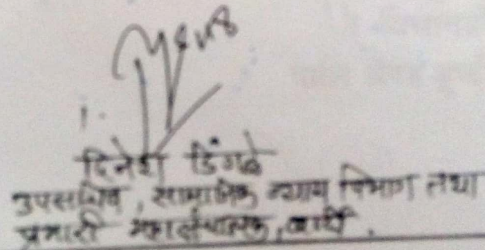 दिनेश डिंगळे
उपसचिव, सामाजिक न्याय विभाग तथा
प्रभारी महासंचालक, बार्टी.